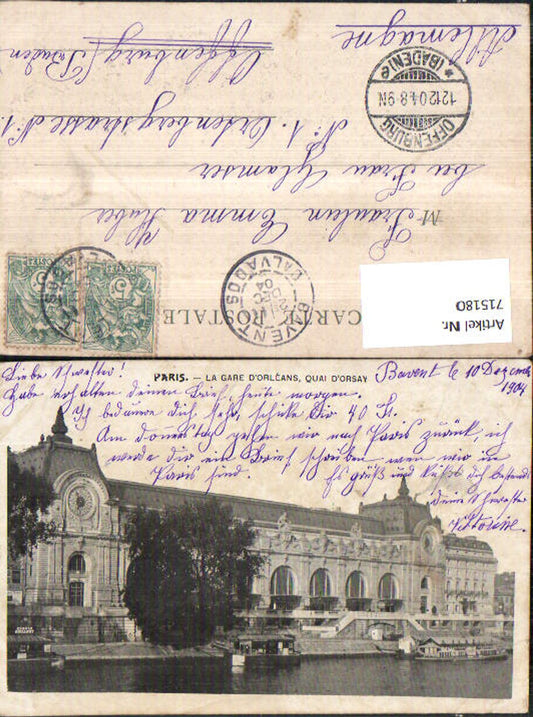 Allemagne
Offenburg (Baden)
Ortenbergstrasse No 1.
bei Frau Glamser
M Fräulein Emma Huber
CARTE POSTALE
OFFENBURG
12.12.04.8-9N.
* (BADEN) c
BAVENT
DEC
04
CALVADOS
5
5
Artikel Nr.
715180
PARIS. — LA GARE D'ORLÉANS, QUAI D'ORSAY
Bavent le 10 Dezember
1904
Liebe Schwester!
Habe erhalten deinen Brief heute morgen.
Ich bedaure dich sehr, schicke dir 40 Fr.
Am Donnerstag gehen wir nach Paris zurück, ich
werde dir ein Brief schreiben wen wir in
Paris sind. Es grüß und küßt dich bestens
deine Schwester
Viktorine.